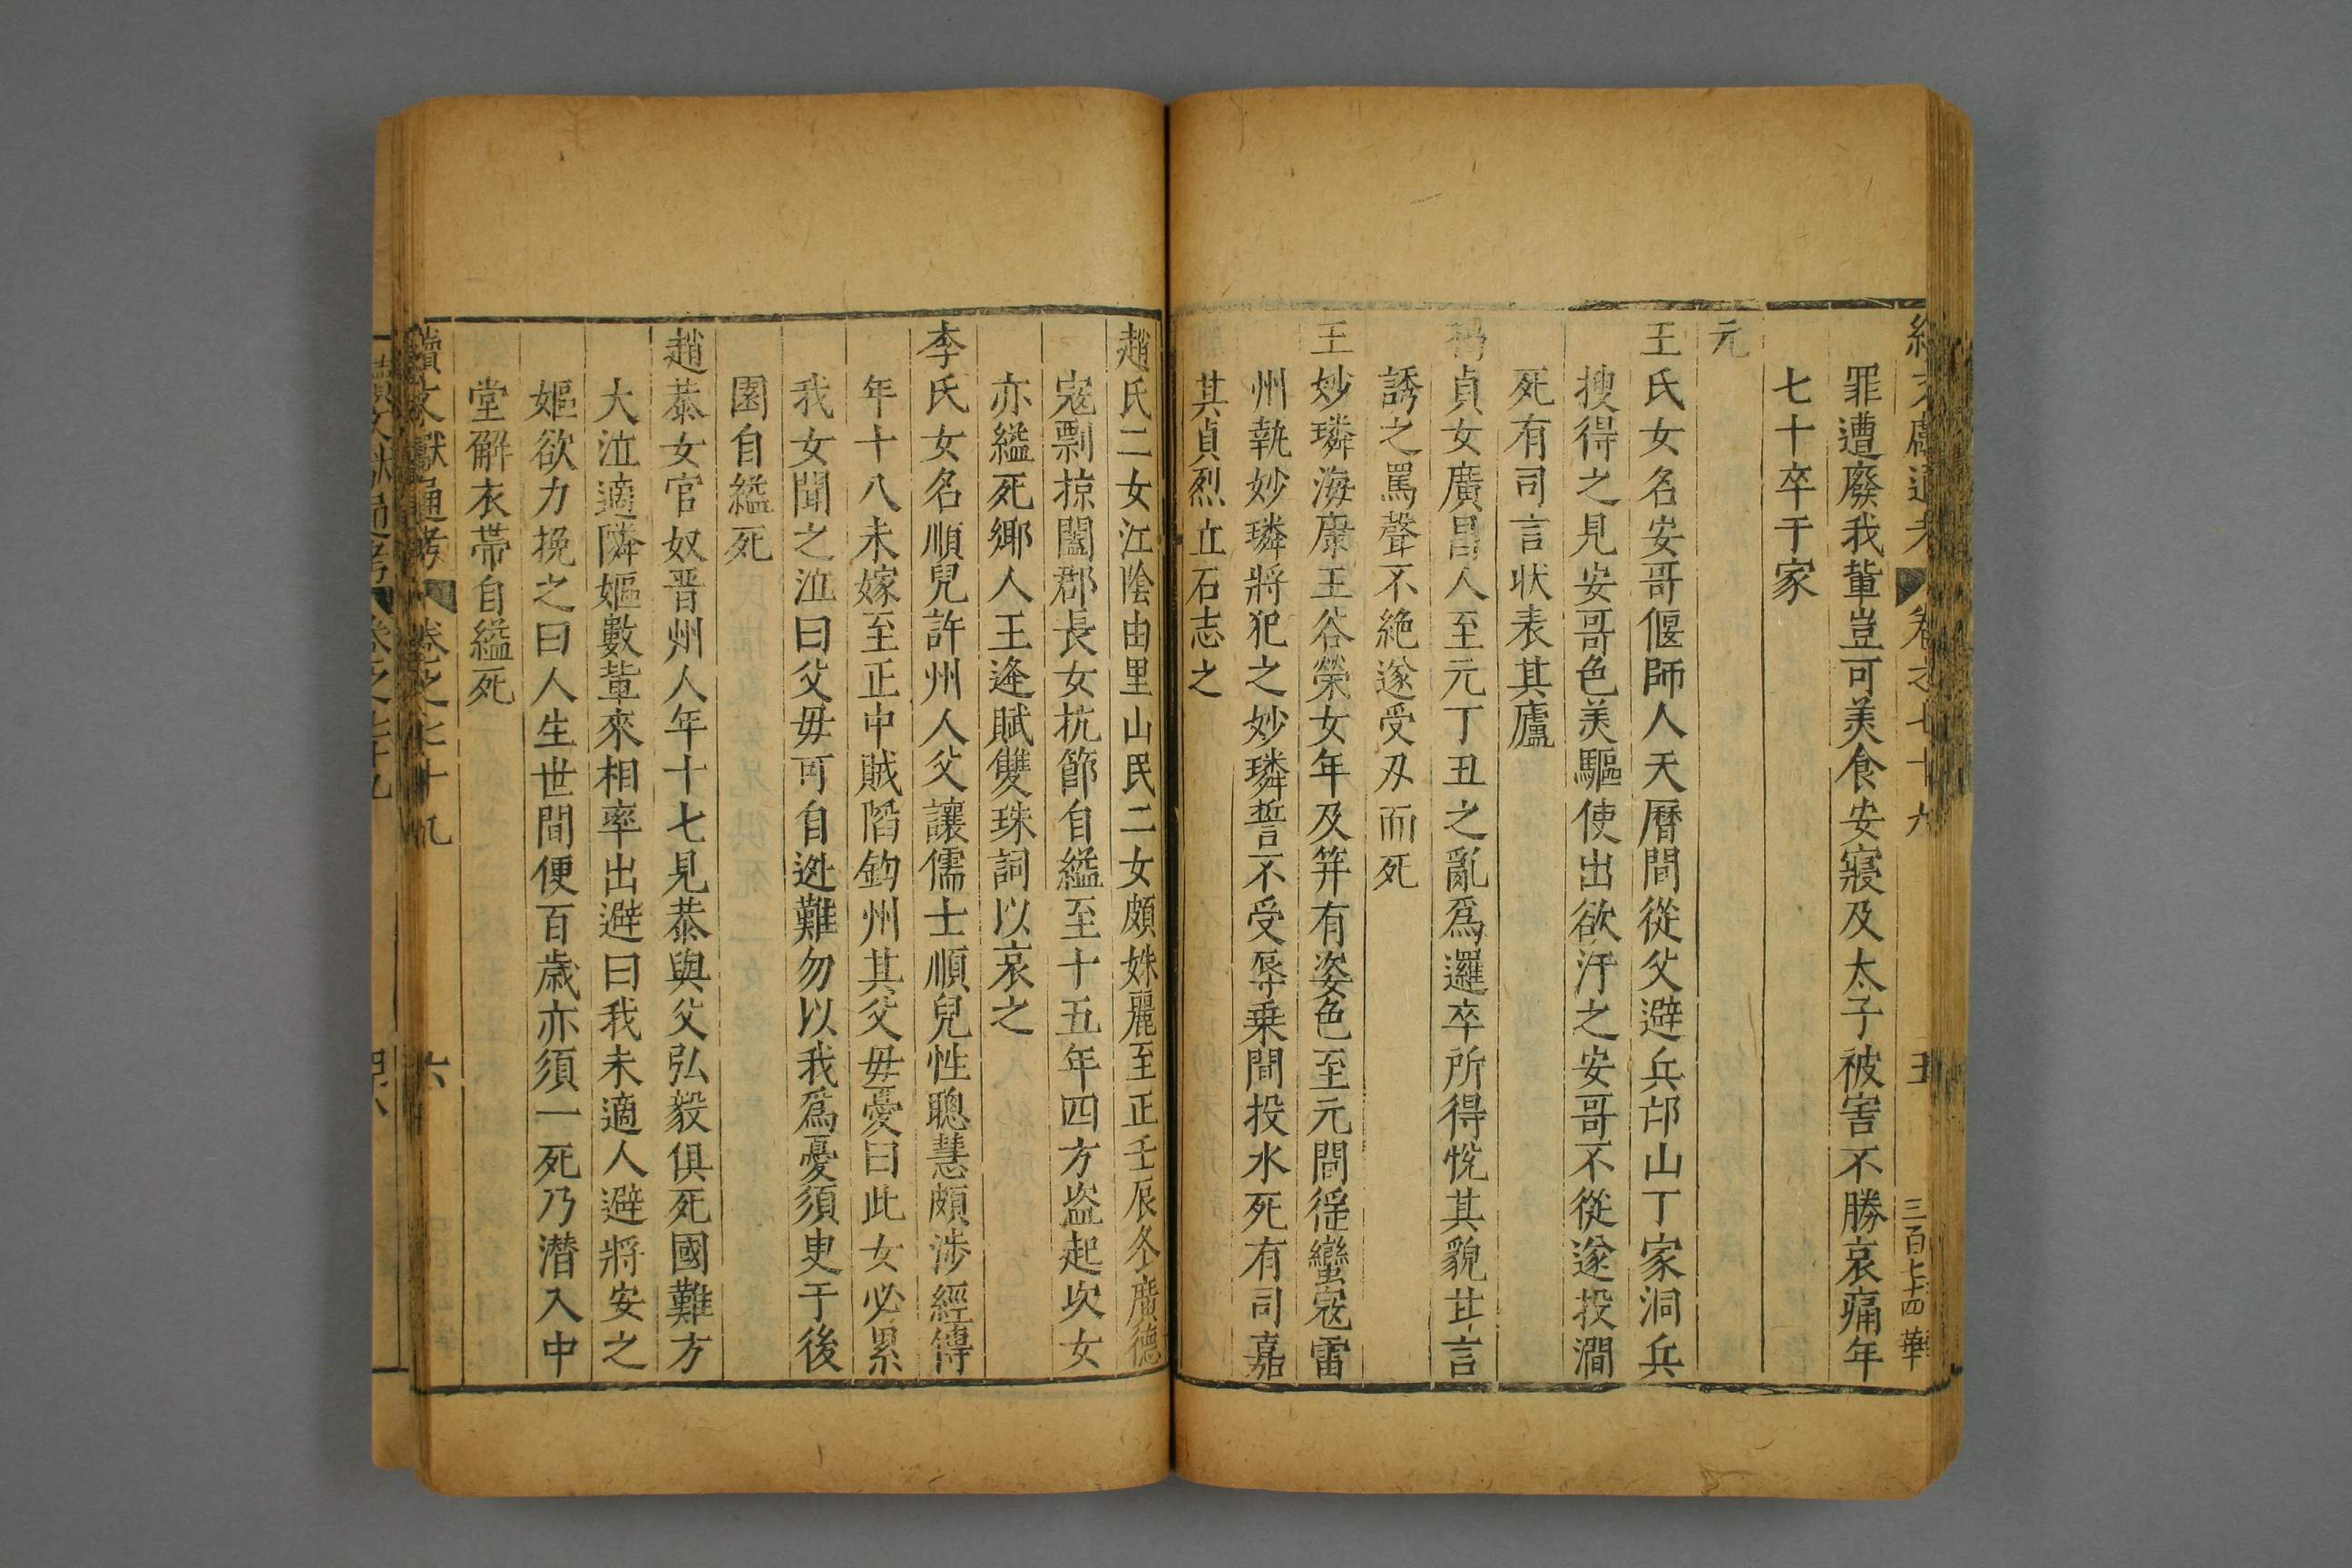 續文獻通考 卷之七十九 五 三百七十四 華
罪遭廢我輩豈可美食安寢及太子被害不勝哀痛年
七十卒于家
元
王氏女名安哥偃師人天曆間從父避兵邙山丁家洞兵
搜得之見安哥色美驅使出欲汙之安哥不從遂投澗
死有司言状表其廬
貞女廣昌人至元丁丑之亂爲邏卒所得悅其貌甘言
誘之罵聲不絶遂受刃而死
王妙璘海康王谷榮女年及笄有姿色至元間徭蠻寇雷
州執妙璘將犯之妙璘誓不受辱乗間投水死有司嘉
其貞烈立石志之
趙氏二女江陰由里山民二女頗姝麗至正壬辰冬廣德
寇剽掠闔郡長女抗節自縊至十五年四方盗起次女
亦縊死鄉人王逢賦雙珠詞以哀之
李氏女名順兒許州人父讓儒士順兒性聰慧頗涉經傳
年十八未嫁至正中賊陷鈞州其父毋憂曰此女必累
我女聞之泣曰父毋可自迯難勿以我爲憂須臾于後
園自縊死
趙恭女官奴晋州人年十七見恭與父弘毅俱死國難方
大泣適隣嫗數輩來相率出避曰我未適人避將安之
嫗欲力挽之曰人生世間便百歲亦須一死乃潜入中
堂解衣帶自縊死
續文獻通考 卷之七十九 六
續文獻通考 卷之七十九